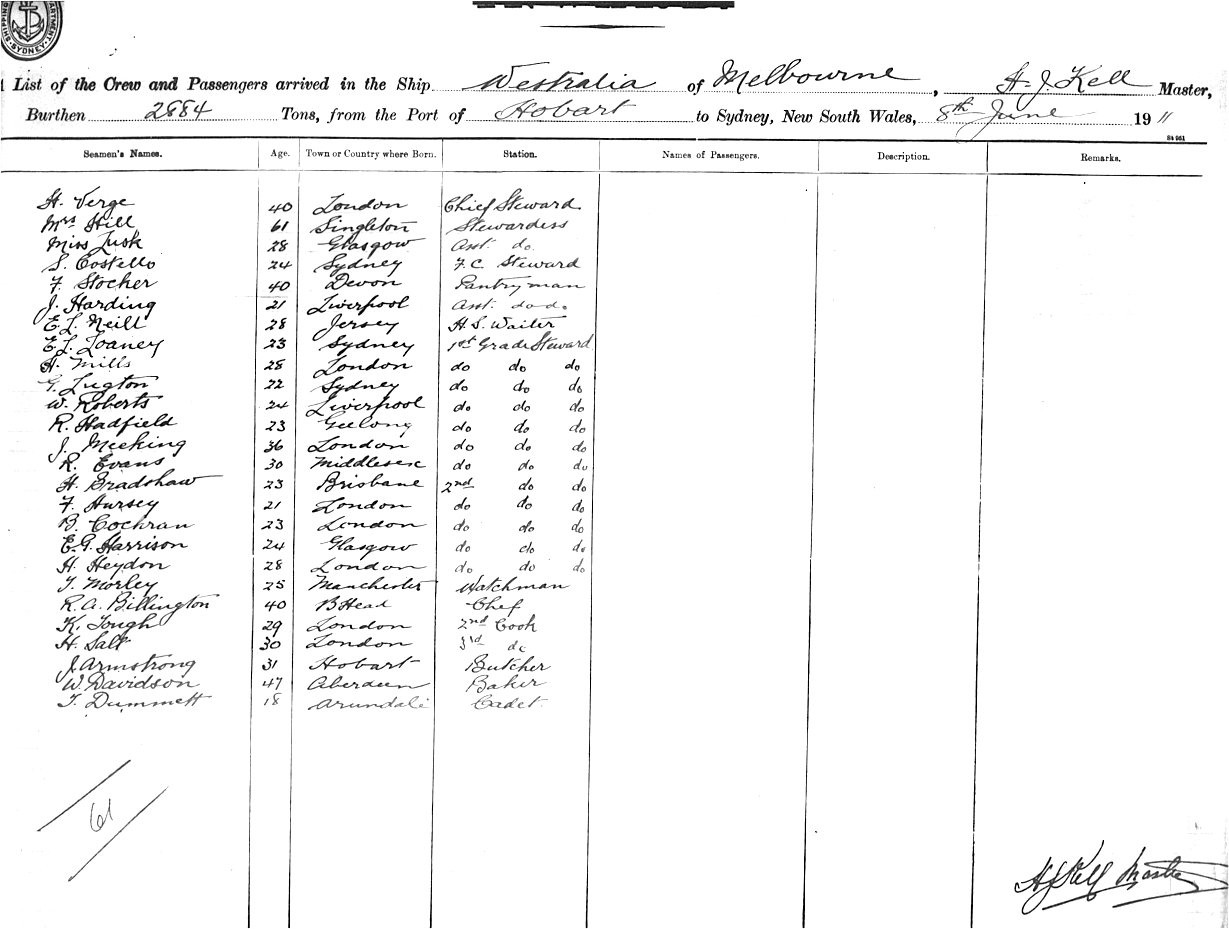 SHIPPING DEPARTMENT. SYDNEY
List of the Crew and Passengers arrived in the Ship Westralia of Melbourne, H. J. Kell Master,
Burthen 2884 Tons, from the Port of Hobart to Sydney, New South Wales, 8th June 1911
S4 961
Seamen's Names. Age. Town or Country where Born. Station. Names of Passengers. Description. Remarks.
H. Verge 40 London Chief Steward
Mrs Hill 61 Singleton Stewardess
Miss Lusk 28 Glasgow Asst. do.
S. Costello 24 Sydney F.C. Steward
F. Stocher 40 Devon Pantryman
J. Harding 21 Liverpool Asst. do do.
E. L. Neill 28 Jersey H. S. Waiter
E. L. Loaney 23 Sydney 1st Grade Steward
H. Mills 28 London do do do
G. Lugton 22 Sydney do do do
W. Roberts 24 Liverpool do do do
R. Hadfield 23 Geelong do do do
J. Meeking 36 London do do do
R. Evans 30 Middlesex do do do
H. Bradshaw 23 Brisbane 2nd do do
F. Hursey 21 London do do do
B. Cochran 23 London do do do
E. G. Harrison 24 Glasgow do do do
H. Heydon 28 London do do do
T. Morley 25 Manchester Watchman
R. A. Billington 40 BHead Chef
K. Tough 29 London 2nd Cook
H. Salt 30 London 3rd do
J. Armstrong 31 Hobart Butcher
W. Davidson 47 Aberdeen Baker
T. Dummett 18 Arundale Cadet
61
HJKell Master